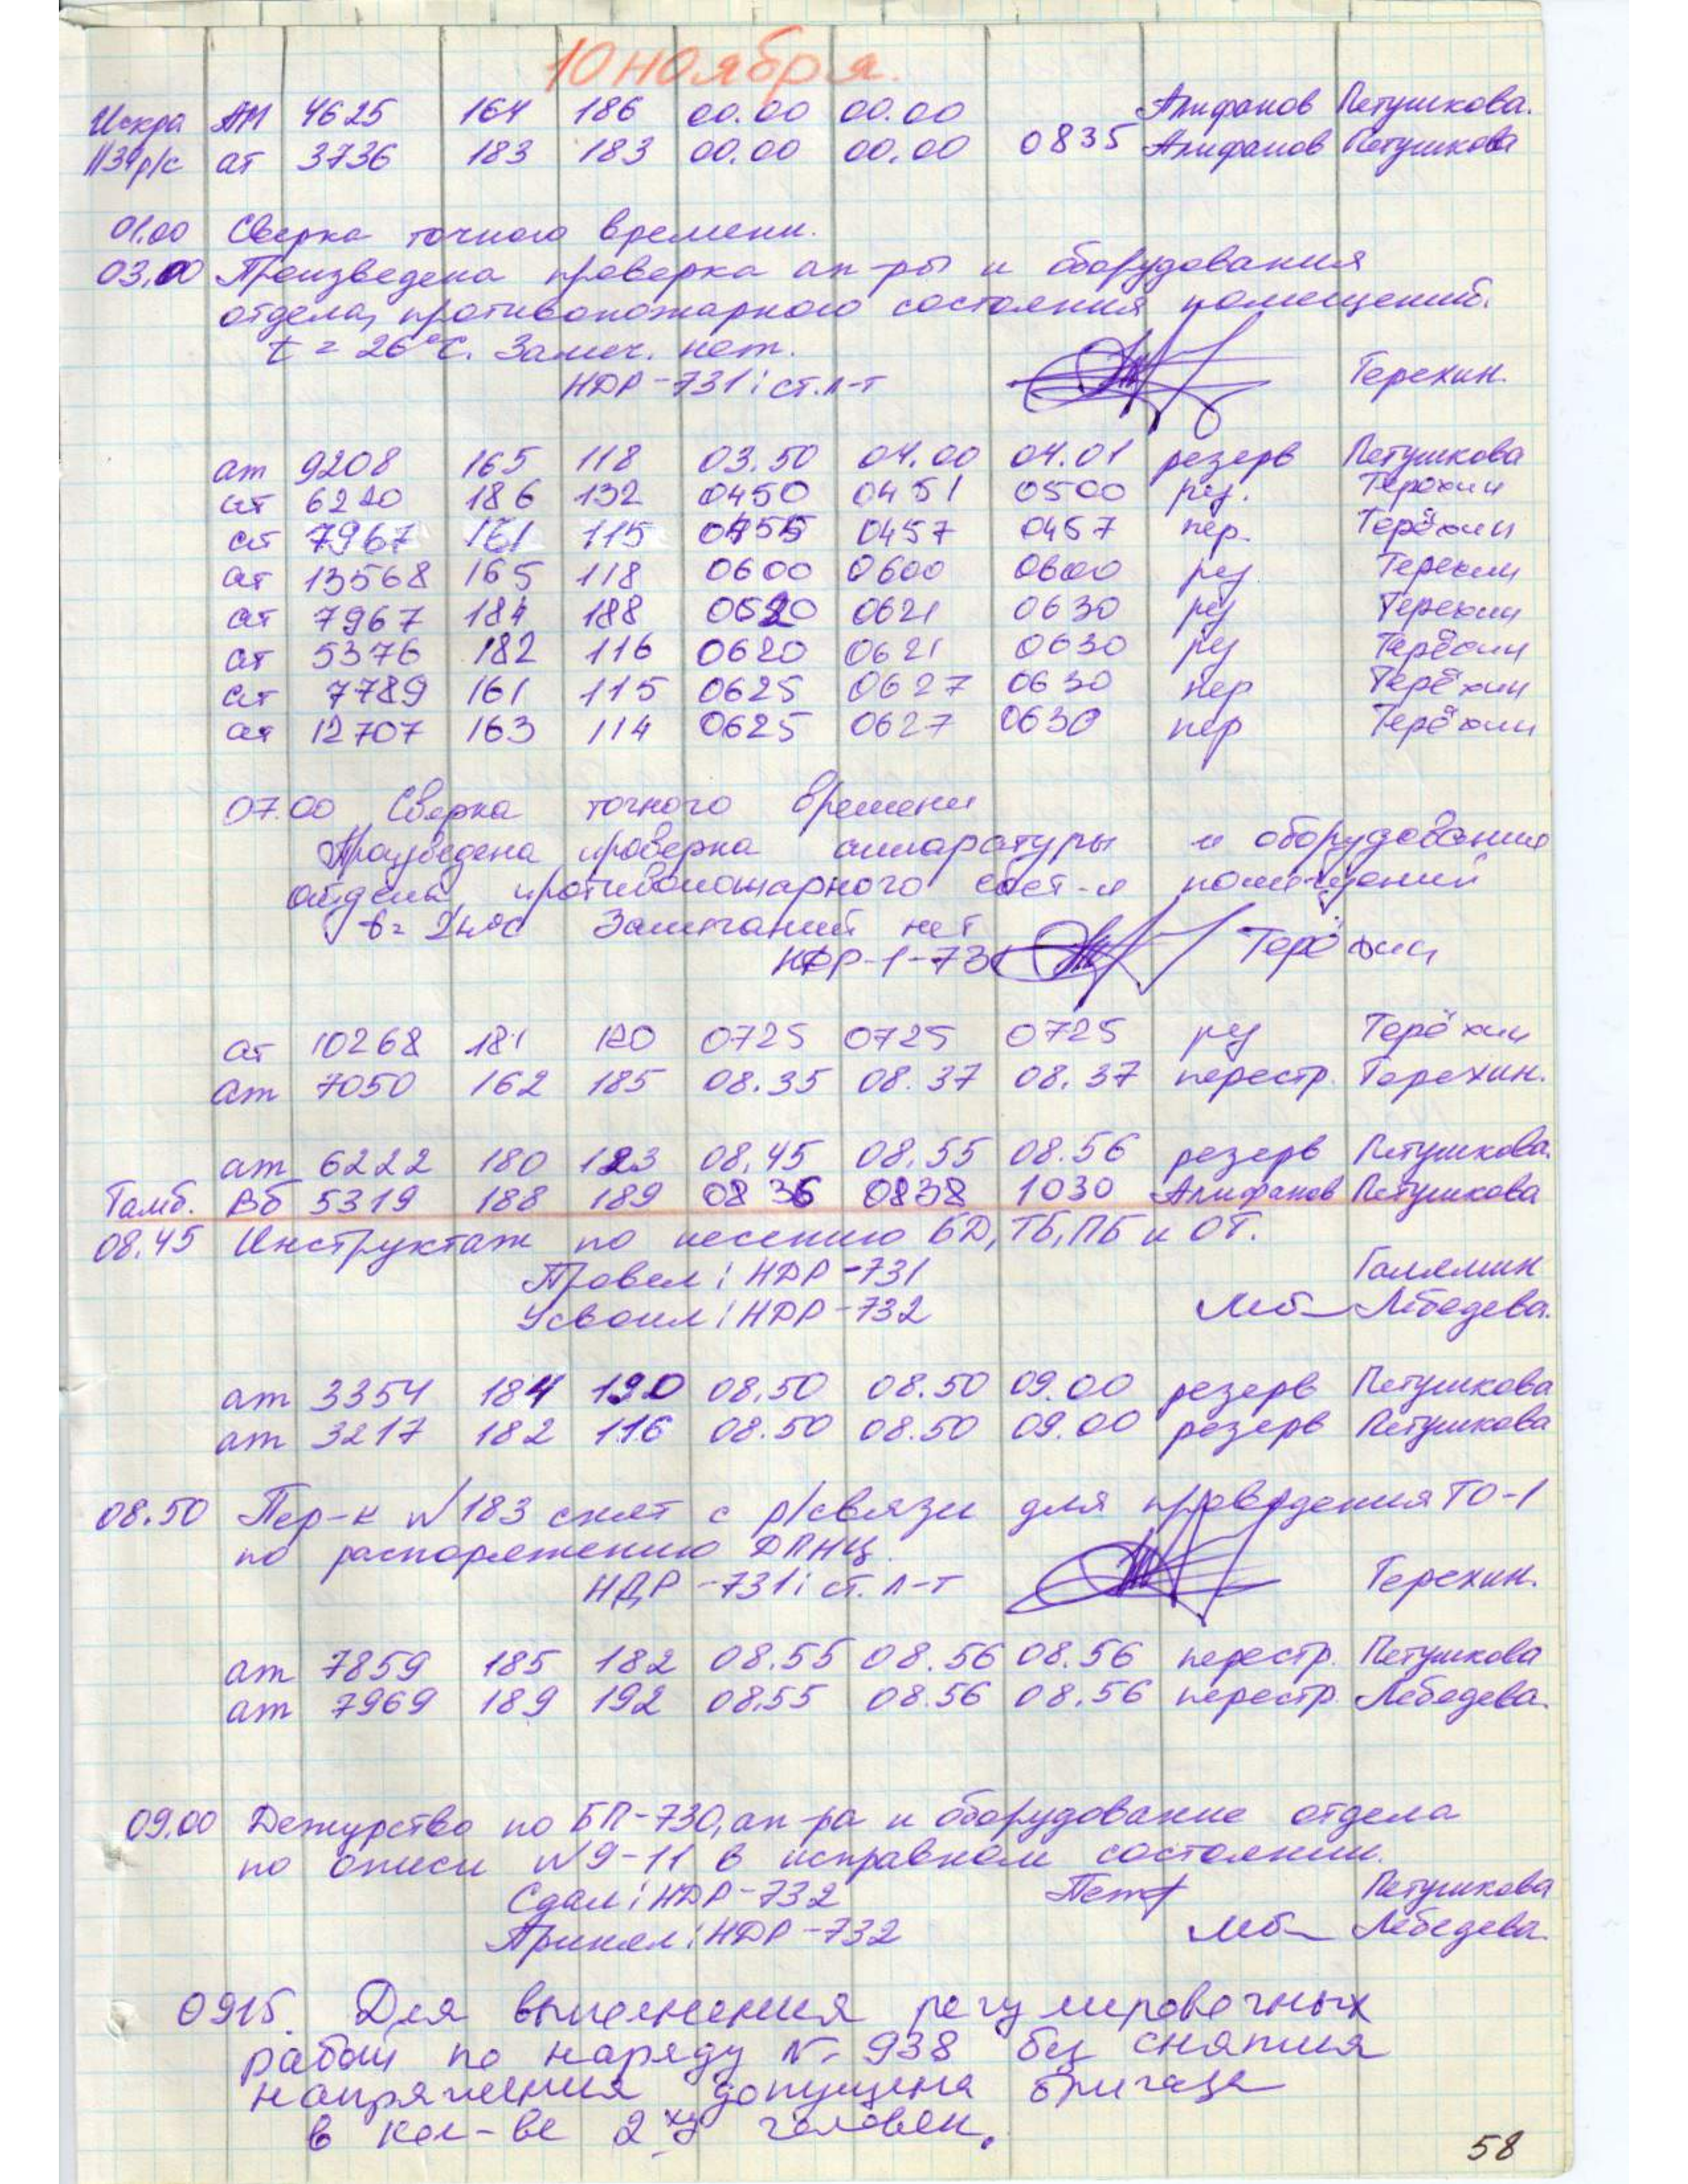 10 ноября.
Искра АМ 4625 164 186 00.00 00.00 Алифанов Петушкова.
ПЗУр/с ат 3736 183 183 00.00 00.00 0835 Алифанов Петушкова
01.00 Сверка точного времени.
03.00 Произведена проверка ап-ры и оборудования
отдела, противопожарного состояния помещений.
t = 26°С. Замеч. нет.
НДР-731: ст.л-т Терехин.
ат 9208 165 118 03.50 04.00 04.01 резерв Петушкова
ат 6220 186 132 0450 0451 0500 рез. Терёхин
ат 7967 161 115 0455 0457 0457 пер. Терёхин
ат 13568 165 118 0600 0600 0600 рез Терехин
ат 7967 184 188 0620 0621 0630 рез Терехин
ат 5376 182 116 0620 0621 0630 рез Терёхин
ат 7789 161 115 0625 0627 0630 пер Терёхин
ат 12707 163 114 0625 0627 0630 пер Терёхин
07.00 Сверка точного времени
Произведена проверка аппаратуры и оборудования
отдела, противопожарного сост-я помещений
t= 24°С Замечаний нет
НДР-1-731 Терёхин
ат 10268 181 120 0725 0725 0725 рез Терёхин
ат 7050 162 185 08.35 08.37 08.37 перестр. Терехин.
ат 6222 180 123 08.45 08.55 08.56 резерв Петушкова.
Тамб. Вб 5319 188 189 0836 0838 1030 Алифанов Петушкова
08.45 Инструктаж по несению БД, ТБ, ПБ и ОТ.
Провел: НДР-731 Галямин
Усвоил: НДР-732 Леб Лебедева.
ат 3354 184 190 08.50 08.50 09.00 резерв Петушкова
ат 3217 182 116 08.50 08.50 09.00 резерв Петушкова
08.50 Пер-к №183 снят с р/связи для проведения ТО-1
по распоряжению ДПНЦ.
НДР-731: ст. л-т Терехин.
ат 7859 185 182 08.55 08.56 08.56 перестр. Петушкова
ат 7969 189 192 08.55 08.56 08.56 перестр. Лебедева.
09.00 Дежурство по БП-730, ап-ра и оборудование отдела
по описи №9-11 в исправном состоянии.
Сдал: НДР-732 Пет Петушкова
Принял: НДР-732 Леб Лебедева.
0915. Для выполнения регулировочных
работ по наряду № 938 без снятия
напряжения допущена бригада
в кол-ве 2х человек.
58